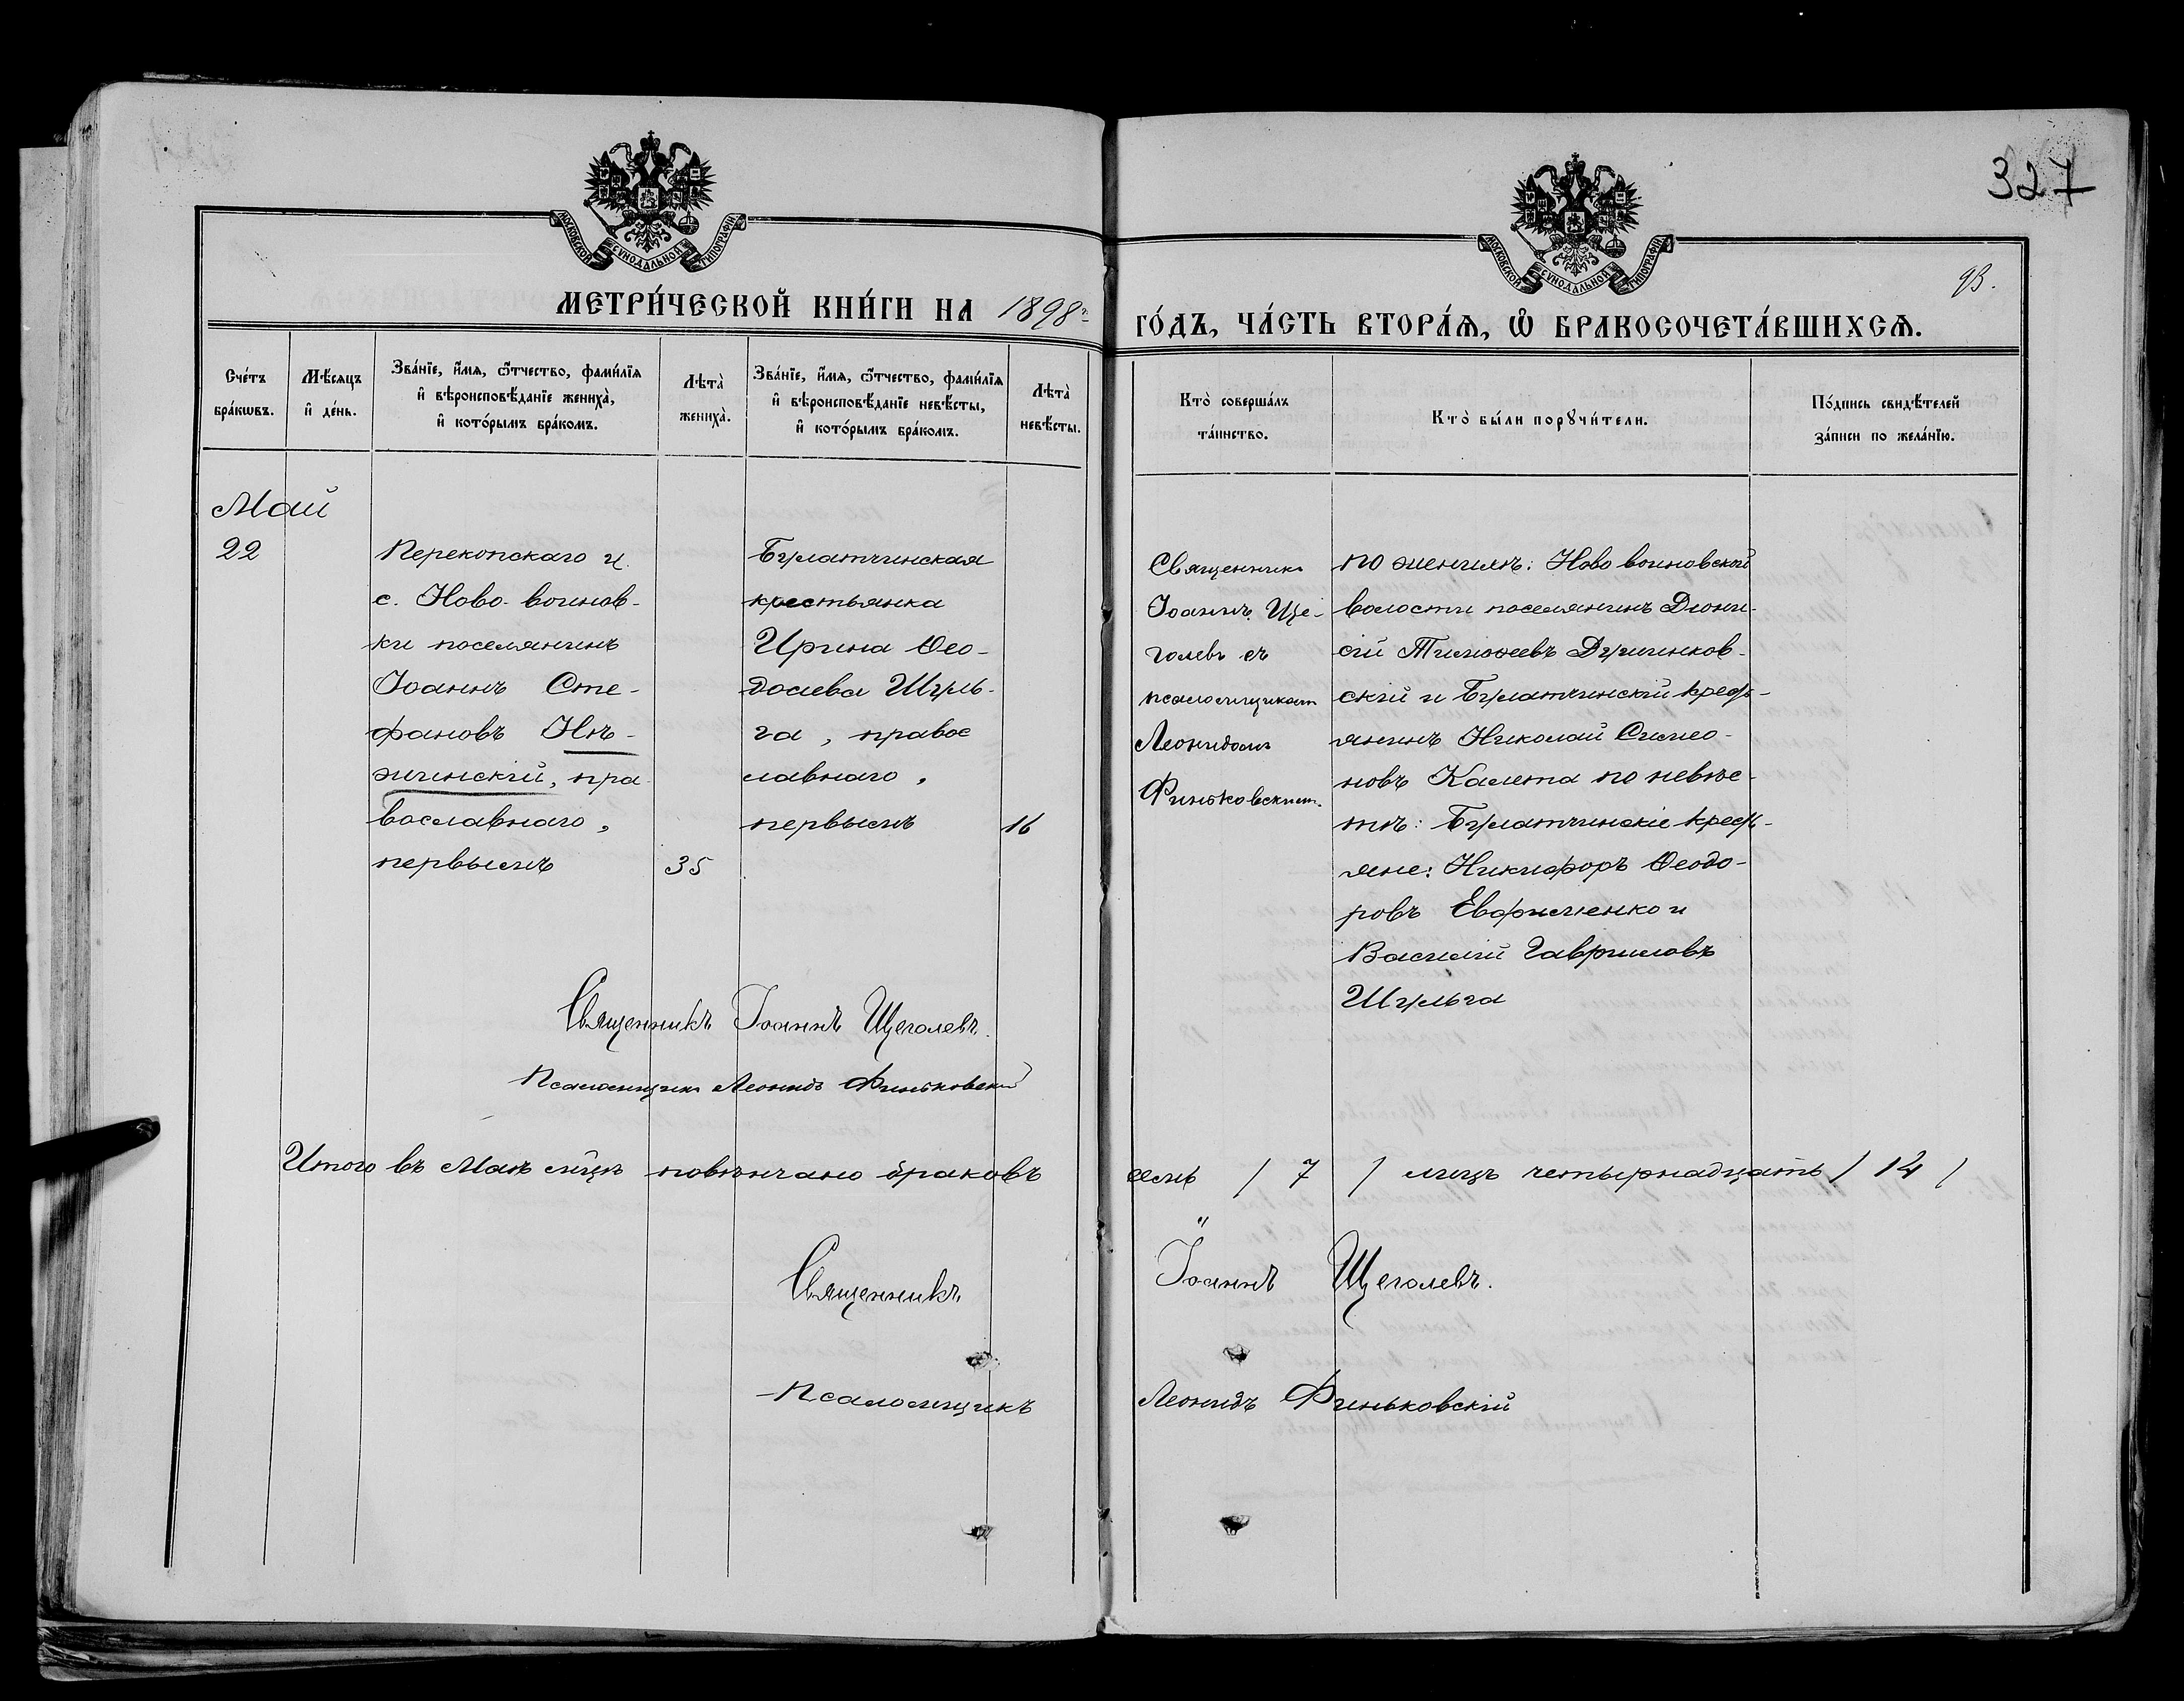 327
93.
МОСКОВСКОЙ СѴНОДАЛЬНОЙ ТИПОГРАФІИ
МОСКОВСКОЙ СѴНОДАЛЬНОЙ ТИПОГРАФІИ
МЕТРИ́ЧЕСКОЙ КНИ́ГИ НА 1898 г.
ГО́ДЪ, ЧА́СТЬ ВТОРА́Ѧ, Ѽ БРАКОСОЧЕТА́ВШИХСѦ.
Сче́тъ
бра́кѡвъ.
Мѣ́сяцъ
и҆ де́нь.
Зва́нїе, и҆́мя, ѻ҆́тчество, фами́лїя
и҆ вѣроисповѣ́данїе жениха̀,
и҆ кото́рымъ бра́комъ.
Лѣта̀
жениха̀.
Зва́нїе, и҆́мя, ѻ҆́тчество, фами́лїя
и҆ вѣроисповѣ́данїе невѣ́сты,
и҆ кото́рымъ бра́комъ.
Лѣта̀
невѣ́сты.
Кто̀ соверша́лъ
та́инство.
Кто̀ бы́ли порꙋчи́тели.
По́дпись свидѣ́телей
за́писи по жела́нїю.
Май
22
Перекопскаго у.
с. Ново-воинов-
ки поселянинъ
Іоаннъ Сте-
фановъ Нѣ-
жинскій, пра-
вославнаго,
первымъ
35
Булатчинская
крестьянка
Ирина Ѳео-
досиева Шуль-
га, правос
лавнаго,
первымъ
16
Священникъ
Іоаннъ Ще-
голевъ съ
псаломщикомъ
Леонидомъ
Финьковскимъ.
по женихѣ: Ново воиновской
волости поселянинъ Діони-
сій Тимоѳеевъ Дучинков-
скій и Булатчинскій крест-
янинъ Николай Симео-
новъ Калета по невѣс-
тѣ: Булатчинскіе крест-
яне: Никифоръ Ѳеодо-
ровъ Евфименко и
Василій Гавриловъ
Шульга
Священникъ Іоаннъ Щеголевъ.
Псаломщикъ Леонидъ Финьковскій
Итого въ Маѣ м-цѣ повѣнчано браковъ семь / 7 / лицъ четырнадцать / 14 /
Священникъ Іоаннъ Щеголевъ.
Псаломщикъ Леонидъ Финьковскій